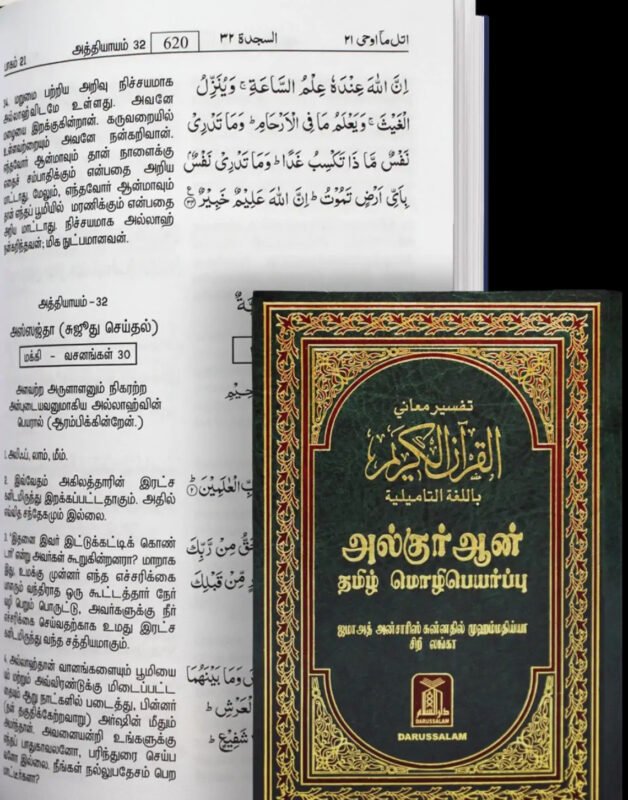 பாகம் 21
அத்தியாயம் 32
620
السجدة ٣٢
اتل ما اوحی ٢١
34. மறுமை பற்றிய அறிவு நிச்சயமாக
அல்லாஹ்விடமே உள்ளது. அவனே
மழையை இறக்குகின்றான். கருவறையில்
உள்ளவற்றையும் அவனே நன்கறிவான்.
எந்தவோர் ஆன்மாவும் தான் நாளைக்கு
எதைச் சம்பாதிக்கும் என்பதை அறிய
மாட்டாது. மேலும், எந்தவோர் ஆன்மாவும்
தான் எந்தப் பூமியில் மரணிக்கும் என்பதை
அறிய மாட்டாது. நிச்சயமாக அல்லாஹ்
நன்கறிந்தவன்; மிக நுட்பமானவன்.
اِنَّ اللّٰهَ عِنْدَهٗ عِلْمُ السَّاعَةِ ۚ وَيُنَزِّلُ
الْغَيْثَ ۚ وَيَعْلَمُ مَا فِى الْاَرْحَامِ ؕ وَمَا تَدْرِىْ
نَفْسٌ مَّا ذَا تَكْسِبُ غَدًا ؕ وَمَا تَدْرِىْ نَفْسٌۢ
بِاَىِّ اَرْضٍ تَمُوْتُ ؕ اِنَّ اللّٰهَ عَلِيْمٌ خَبِيْرٌ ﴿٣٤﴾
அத்தியாயம் -32
அஸ்ஸஜ்தா (சுஜூது செய்தல்)
மக்கி - வசனங்கள் 30
அளவற்ற அருளாளனும் நிகரற்ற
அன்புடையவனுமாகிய அல்லாஹ்வின்
பெயரால் (ஆரம்பிக்கின்றேன்.)
1. அலிஃப், லாம், மீம்.
2. இவ்வேதம் அகிலத்தாரின் இரட்ச
கனிடமிருந்து இறக்கப்பட்டதாகும். அதில்
எவ்வித சந்தேகமும் இல்லை.
بِّ الْعٰلَمِيْنَ ﴿٢﴾
3. 'இதனை இவர் இட்டுக்கட்டிக் கொண்
டார்' என்று அவர்கள் கூறுகின்றனரா? மாறாக
இது, உமக்கு முன்னர் எந்த எச்சரிக்கை
யாளரும் வந்திராத ஒரு கூட்டத்தார் நேர்
வழி பெறும் பொருட்டு, அவர்களுக்கு நீர்
எச்சரிக்கை செய்வதற்காக உமது இரட்ச
கனிடமிருந்து வந்த சத்தியமாகும்.
حَقُّ مِنْ رَّبِّكَ
رٍ مِّنْ قَبْلِكَ
4. அல்லாஹ்தான் வானங்களையும் பூமியை
யும் மற்றும் அவ்விரண்டுக்கு மிடைப்பட்ட
வற்றையும் ஆறு நாட்களில் படைத்து, பின்னர்
(தன் தகுதிக்கேற்றவாறு) அர்ஷின் மீதும்
அமர்ந்தான். அவனையன்றி உங்களுக்கு
எந்தப் பாதுகாவலனோ, பரிந்துரை செய்ப
வனோ இல்லை. நீங்கள் நல்லுபதேசம் பெற
மாட்டீர்களா?
وَمَا بَيْنَهُمَا
الْعَرْشِ ؕ
شَفِيْعٍ ؕ
تفسير معاني
القرآن الكريم
باللغة التاميلية
அல்குர்ஆன்
தமிழ் மொழிபெயர்ப்பு
ஜமாஅத் அன்சாரிஸ் சுன்னதில் முஹம்மதிய்யா
சிறி லங்கா
دار السلام
DARUSSALAM